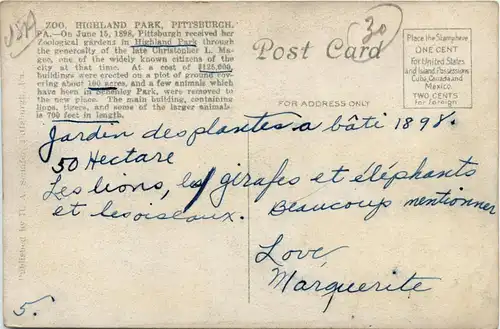 ZOO, HIGHLAND PARK, PITTSBURGH,
PA.—On June 15, 1898, Pittsburgh received her
Zoological gardens in Highland Park through
the generosity of the late Christopher L. Ma-
gee, one of the widely known citizens of the
city at that time. At a cost of $125,000,
buildings were erected on a plot of ground co-
vering about 100 acres, and a few animals which
have been in Schenley Park, were removed to
the new place. The main building, containing
lions, tigers, and some of the larger animals
is 700 feet in length.
30
Post Card
FOR ADDRESS ONLY
Place the Stamp here
ONE CENT
for United States
and Island Possessions
Cuba, Canada and
Mexico.
TWO CENTS
for foreign
Jardin des plantes a bâti 1898.
50 Hectare
Les lions, les girafes et éléphants
et les oiseaux. Beaucoup mentionner
Love,
Marguerite
5.
Published by